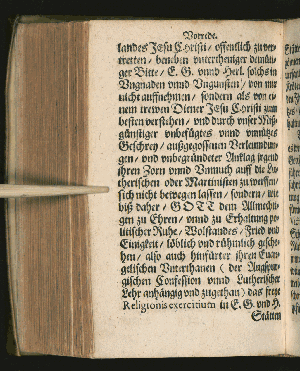 Vorrede.
landes Jesu Christi / offentlich zu ver-
tretten / beneben untertheniger demüti-
ger Bitte / E. G. vnnd Herl. solchs in
Vngnaden vnnd Vngunsten / von mir
nicht auffnehmen / sondern als von ey-
nem trewen Diener Jesu Christi zum
besten verstehen / vnd durch vnser Miß-
günstiger vnbefügtes vnnd vnnützes
Geschrey / außgegossenen Verleumbdun-
gen / vnd vnbegründeter Anklag irgend
ihren Zorn vnnd Vnmuth auff die Lu-
therischen oder Martinisten zu werffen /
sich nicht bewegen lassen / sondern / wie
biß daher / GOTT dem Allmechti-
gen zu Ehren / vnnd zu Erhaltung po-
litischer Ruhe / Wolstandes / Fried vnd
Einigkeit / löblich vnd rühmlich gesche-
hen / also auch hinfürter ihren Euan-
gelischen Vnterthanen ( der Augspur-
gischen Confession vnnd Lutherischer
Lehr anhängig vnd zugethan ) das freye
Religionis exercitium in E. G. vnd H.
Stätten